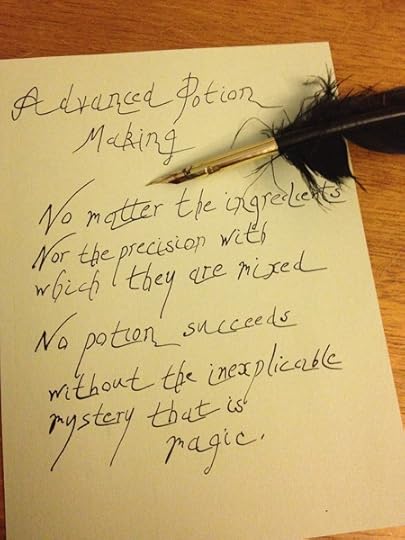 Advanced Potion
Making
No matter the ingredients
Nor the precision with
which they are mixed
No potion succeeds
without the inexplicable
mystery that is
magic.